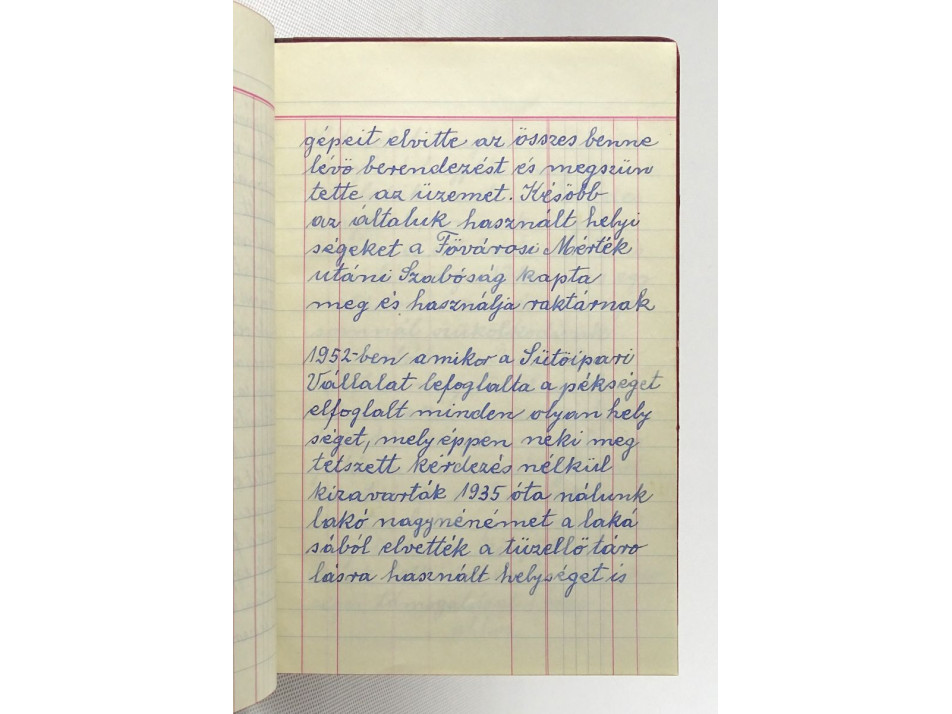 gépeit elvitte az összes benne
lévö berendezést és megszün
tette az üzemet. Késöbb
az általuk használt helyi
ségeket a Fövárosi Mérték
utáni Szabóság kapta
meg és használja raktárnak
1952-ben amikor a Sütöipari
Vállalat lefoglalta a pékséget
elfoglalt minden olyan hely
séget, mely éppen néki meg
tetszett kérdezés nélkül
kizavarták 1935 óta nálunk
lakó nagynénémet a laká
sából elvették a tüzellö táro
lásra használt helységet is